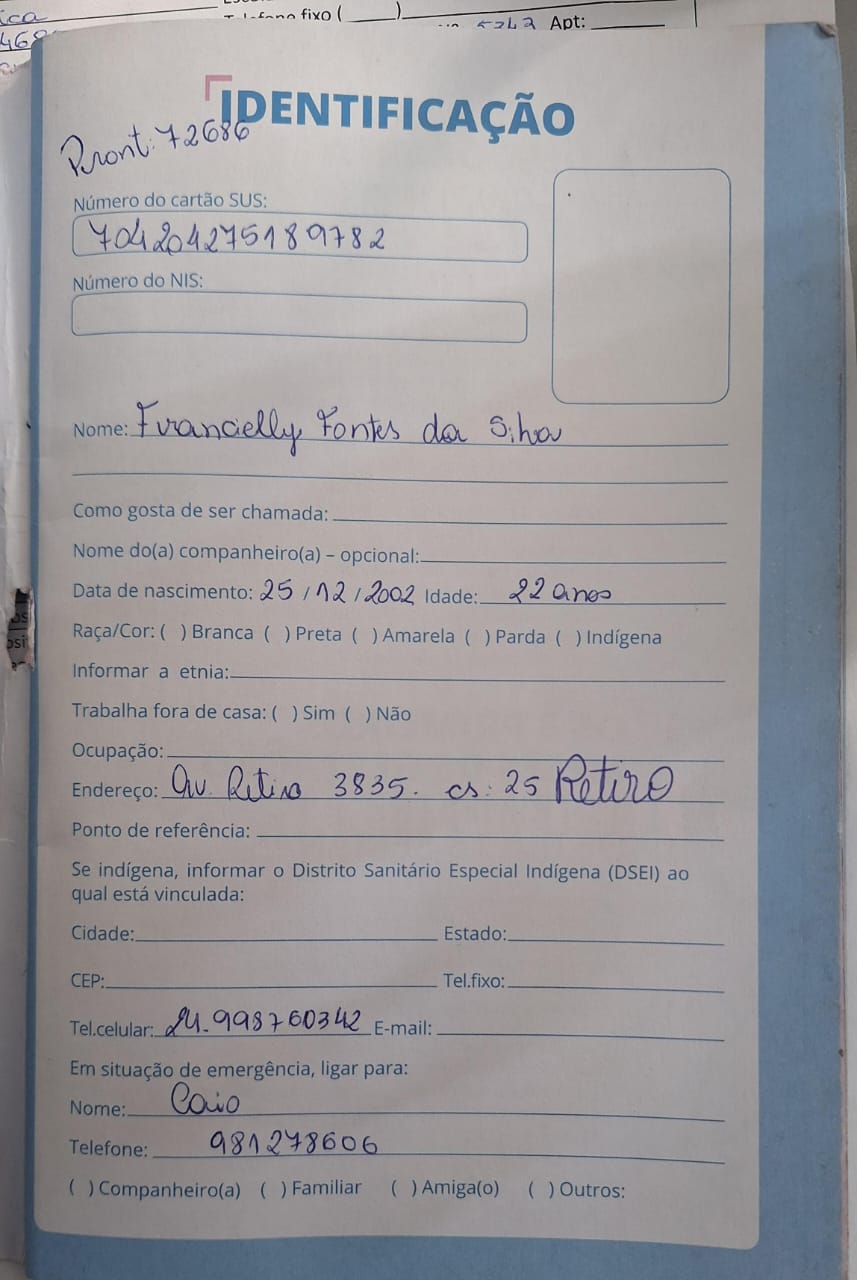 ica
fixo ( )
468
Apt:
IDENTIFICAÇÃO
Pront: 72686
Número do cartão SUS:
704204275189782
Número do NIS:
Nome: Francielly Fontes da Silva
Como gosta de ser chamada:
Nome do(a) companheiro(a) – opcional:
Data de nascimento: 25/12/2002 Idade: 22 anos
Raça/Cor: ( ) Branca ( ) Preta ( ) Amarela ( ) Parda ( ) Indígena
Informar a etnia:
Trabalha fora de casa: ( ) Sim ( ) Não
Ocupação:
Endereço: Av. Retiro 3835. cs: 25 Retiro
Ponto de referência:
Se indígena, informar o Distrito Sanitário Especial Indígena (DSEI) ao
qual está vinculada:
Cidade: Estado:
CEP: Tel.fixo:
Tel.celular: 24.998760342 E-mail:
Em situação de emergência, ligar para:
Nome: Caio
Telefone: 981278606
( ) Companheiro(a) ( ) Familiar ( ) Amiga(o) ( ) Outros: